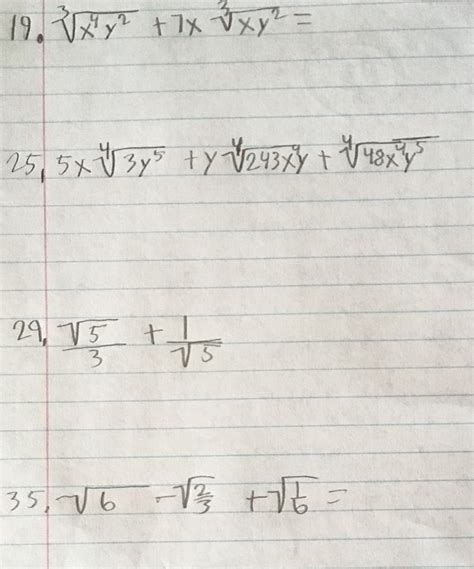 19. ∛(x⁴y²) + 7x ∛(xy²) =
25, 5x ∜(3y⁵) + y ∜(243x⁴y) + ∜(48x⁴y⁵)
29, √5/3 + 1/√5
35, √6 - √(2/3) + √(1/6) =